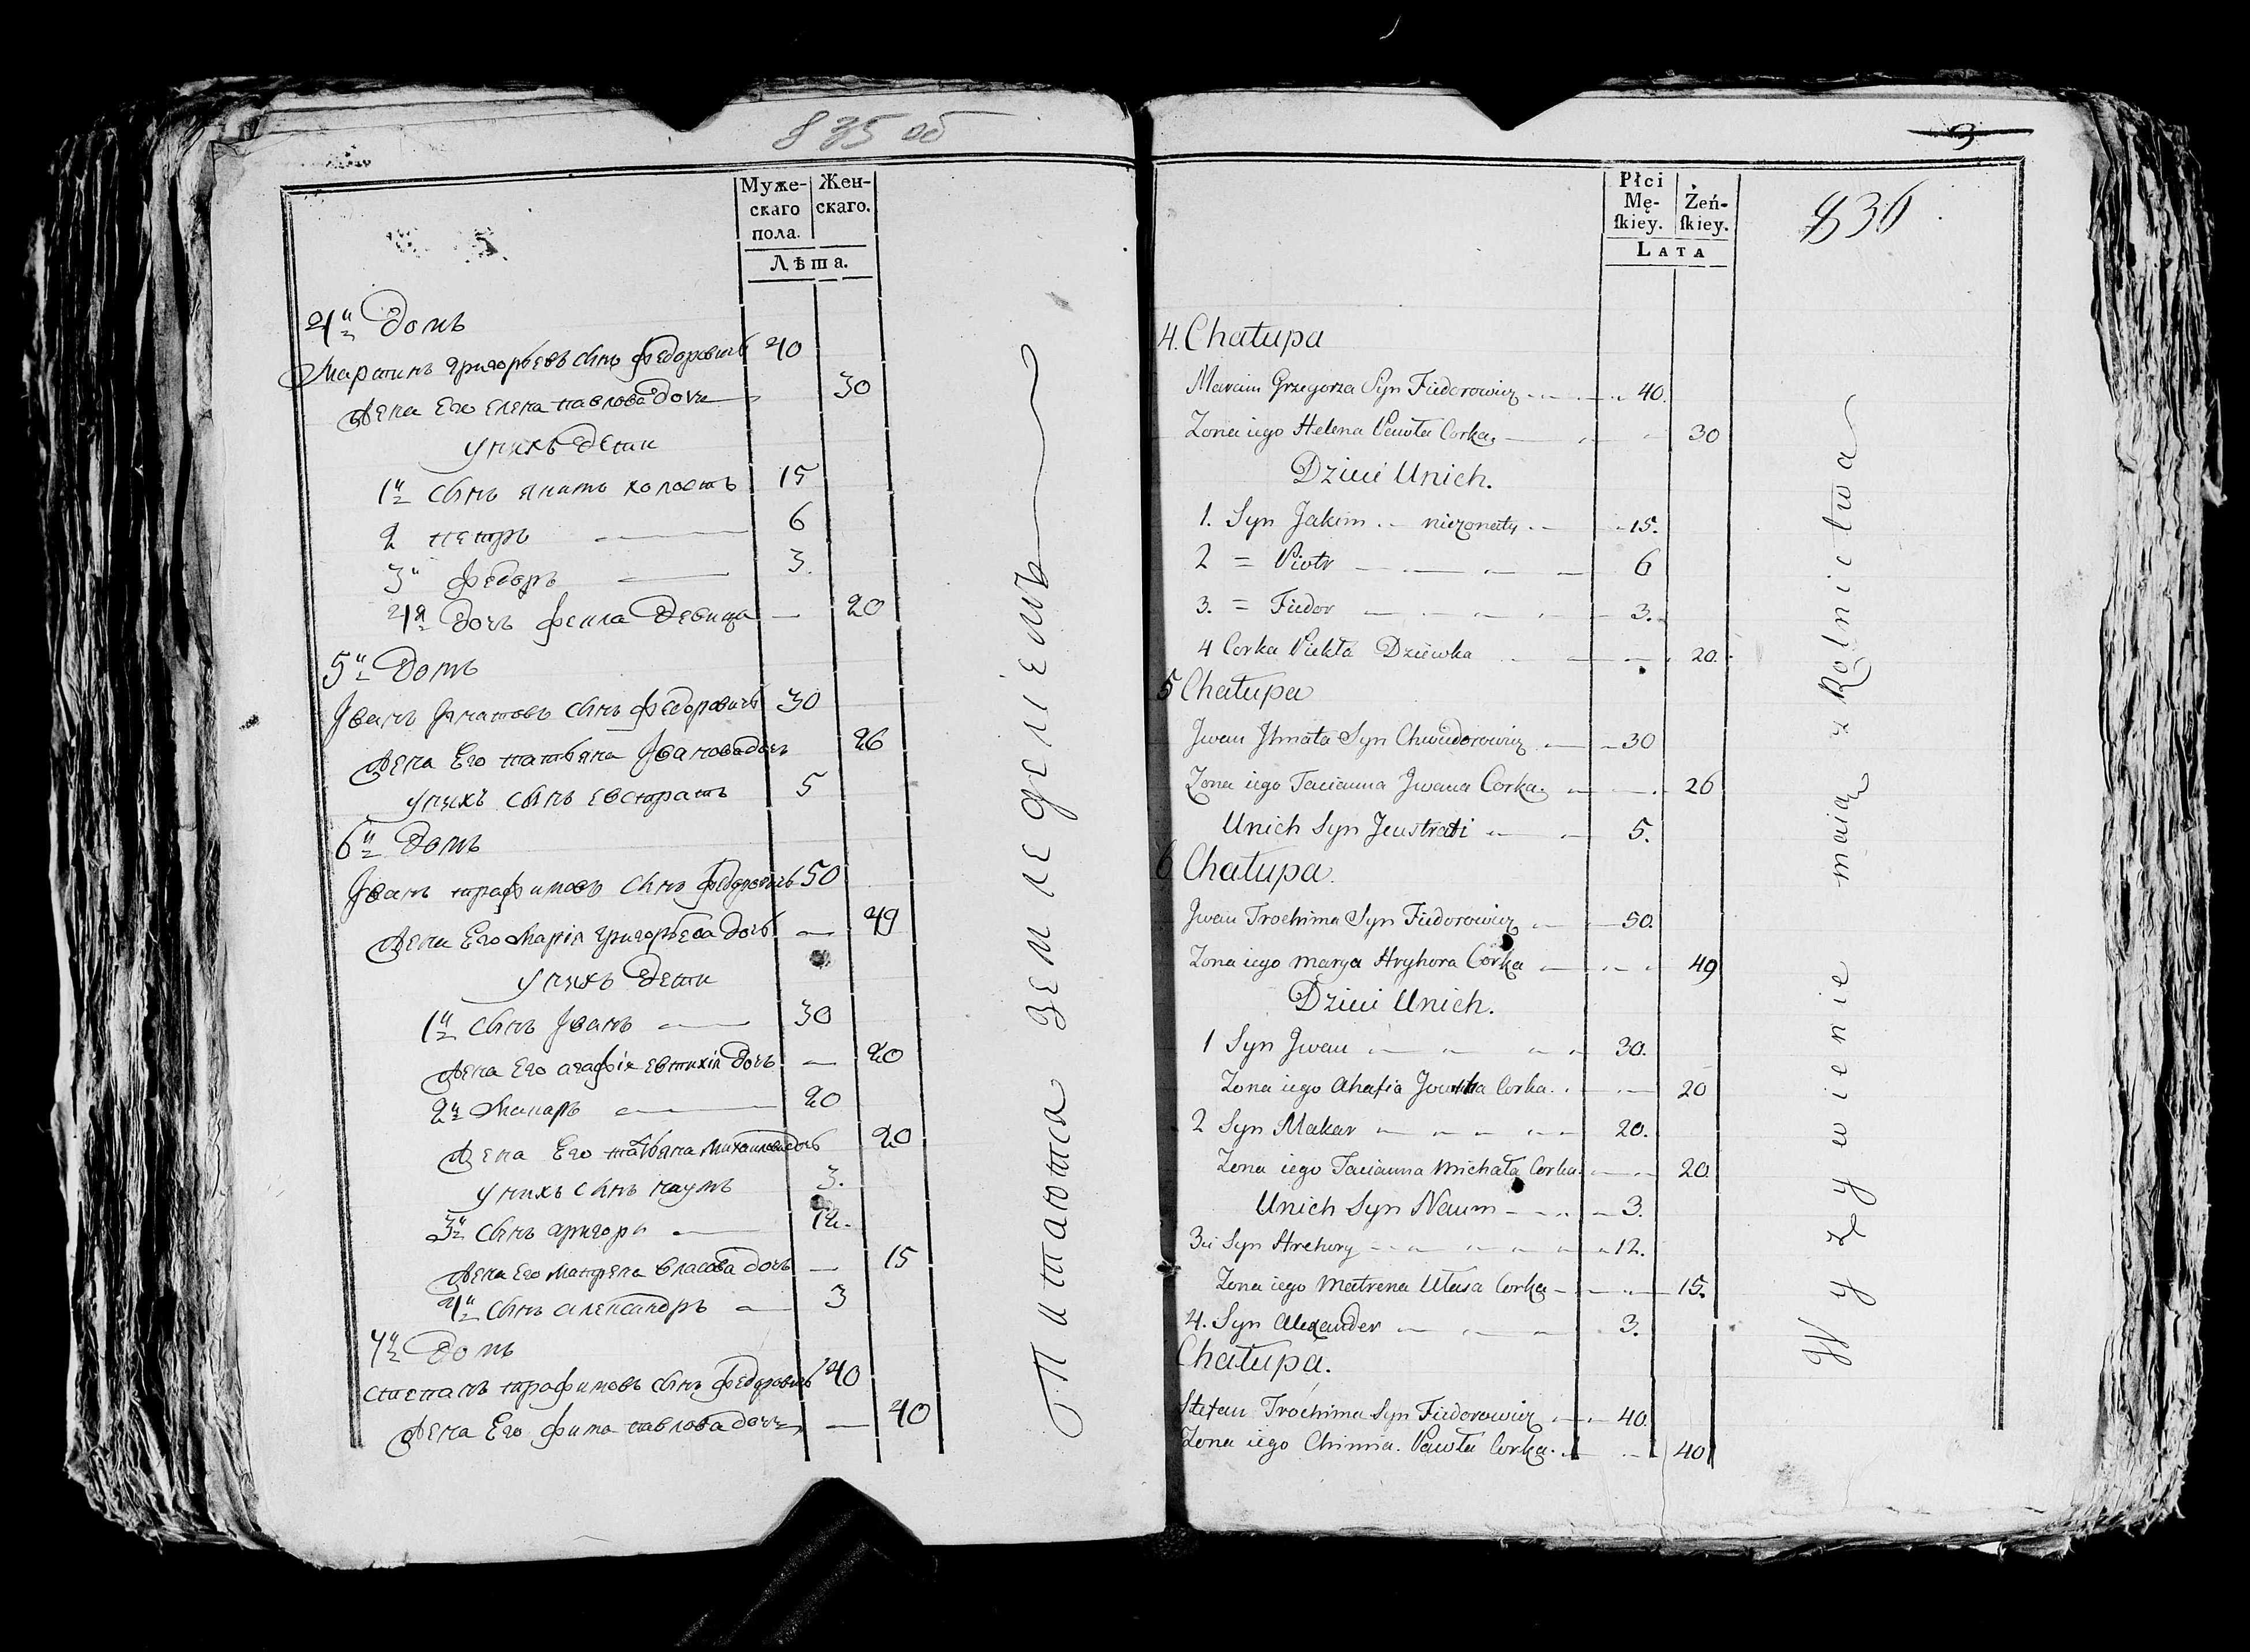 835 об
Муже-
скаго
пола.
Жен-
скаго.
Лѣта.
4й Домъ
Мартинъ григорьевъ сынъ федоровичъ 40
Жена Его елена павлова Дочь 30
у нихъ Дети
1й сынъ якимъ холостъ 15
2 петръ 6
3й федоръ 3.
4я Дочь фекла Девица — 20
5й Домъ
Іванъ Игнатовъ сынъ федоровичъ 30
Жена Его татьяна Іванова дочь 26
у нихъ сынъ евстратъ 5
6й Домъ
Іванъ трафимовъ сынъ федоровичъ 50
Жена Его Марія григорьева Дочь — 49
у нихъ Дети
1й сынъ Іванъ 30
Жена Его агафія евтихія Дочь — 20
2й Макаръ 20
Жена Его татьяна михайлова дочь 20
у нихъ сынъ наумъ 3.
3й сынъ григори 12.
Жена Его Матрена власова дочь — 15
4й сынъ александръ 3
7й Домъ
степанъ трафимовъ сынъ федоровичъ 40
Жена Его фима павлова дочь — 40
Питаютса земледеліемъ
3
836
Płci
Mę-
ſkiey.
Żeń-
ſkiey.
LATA
4. Chałupa
Marcin Grzegorza Syn Fiedorowicz 40.
Zona iego Helena Pawła Corka 30
Dzieci Unich.
1. Syn Jakim niezonaty 15.
2 = Piotr 6
3. = Fiedor 3.
4 Corka Piekła Dziewka 20.
5 Chałupa
Jwan Jhnata Syn Chwiedorowicz 30
Zona iego Tacianna Jwana Corka 26
Unich Syn Jeustrati 5.
6 Chałupa.
Jwan Trochima Syn Fiedorowicz 50.
Zona iego Marya Hryhora Corka 49
Dzieci Unich.
1 Syn Jwan 30.
Zona iego Ahafia Corka 20
2 Syn Makar 20.
Zona iego Tacianna Michała Corka 20
Unich Syn Naum 3.
3ci Syn Hrehory 12.
Zona iego Matrena Ułasa Corka 15.
4. Syn Alexander 3.
Chałupa.
Stefan Trochima Syn Fiedorowicz 40.
Zona iego Chimia. Pawła Corka 40
Wyzywienie maią z Rolnictwa